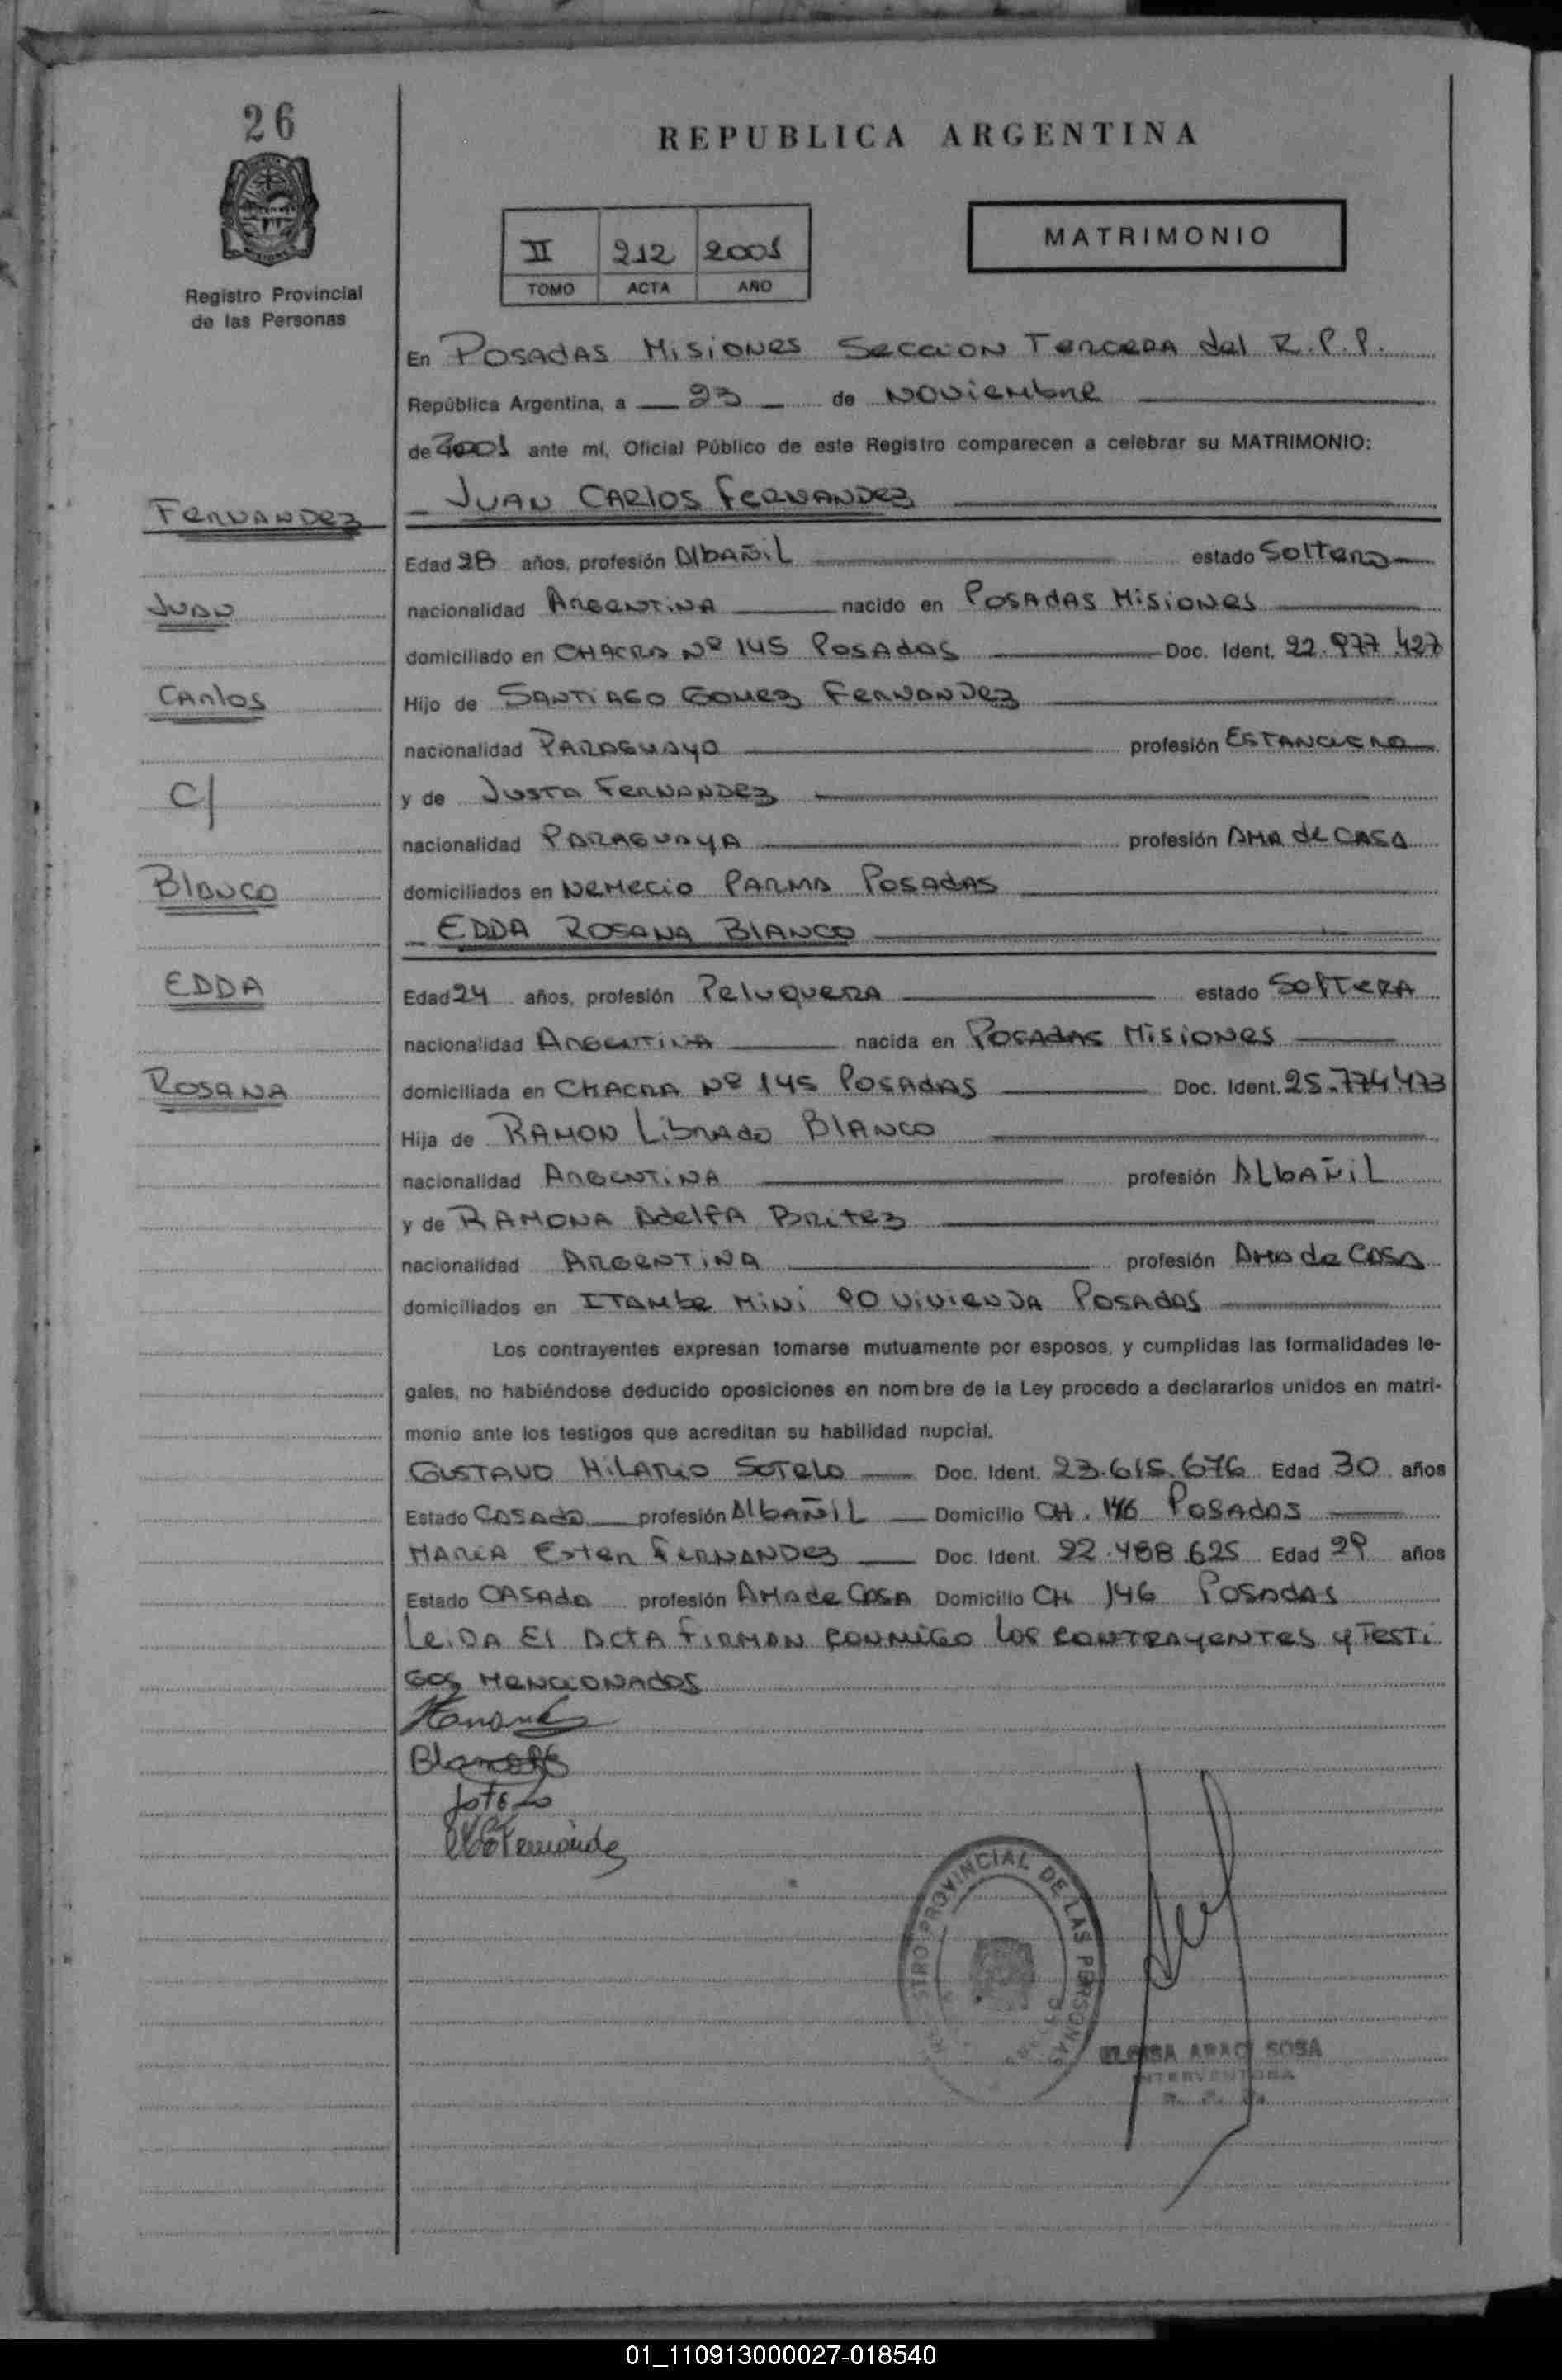 26
REPUBLICA ARGENTINA
II 212 2001
TOMO ACTA AÑO
MATRIMONIO
Registro Provincial
de las Personas
En POSADAS MISIONES SECCION TERCERA del R.P.P.
República Argentina, a 23 de NOVIEMBRE
de 2001 ante mí, Oficial Público de este Registro comparecen a celebrar su MATRIMONIO:
FERNANDEZ
JUAN CARLOS FERNANDEZ
Edad 28 años, profesión AlbAÑiL estado SolTERO
JUAN
nacionalidad ARGENTINA nacido en POSADAS MISIONES
domiciliado en CHACRA Nº 145 POSADAS Doc. Ident. 22.977.427
CARLOS
Hijo de SANTIAGO GOMEZ FERNANDEZ
nacionalidad PARAGUAYO profesión ESTANCIERO
C/
y de JUSTA FERNANDEZ
nacionalidad PARAGUAYA profesión AMA de CASA
BLANCO
domiciliados en NEMECIO PARMA POSADAS
EDDA ROSANA BLANCO
EDDA
Edad 24 años, profesión PELUQUERA estado SOLTERA
nacionalidad ARGENTINA nacida en POSADAS MISIONES
ROSANA
domiciliada en CHACRA Nº 145 POSADAS Doc. Ident. 25.774.473
Hija de RAMON LIBRADO BLANCO
nacionalidad ARGENTINA profesión ALBAÑIL
y de RAMONA ADELFA BRITEZ
nacionalidad ARGENTINA profesión AMA de CASA
domiciliados en ITAMBE MINI 90 VIVIENDA POSADAS
Los contrayentes expresan tomarse mutuamente por esposos, y cumplidas las formalidades le-
gales, no habiéndose deducido oposiciones en nombre de la Ley procedo a declararlos unidos en matri-
monio ante los testigos que acreditan su habilidad nupcial.
GUSTAVO HILARIO SOTELO Doc. Ident. 23.615.676 Edad 30 años
Estado CASADO profesión ALBAÑIL Domicilio CH. 146 POSADAS
MARIA ESTER FERNANDEZ Doc. Ident. 22.488.625 Edad 29 años
Estado CASADA profesión AMA de CASA Domicilio CH 146 POSADAS
LEIDA EL ACTA FIRMAN CONMIGO LOS CONTRAYENTES Y TESTI
GOS MENCIONADOS
Sotelo
PROVINCIAL DE LAS PERSONAS
ARACI SOSA
INTERVENTORA
01_110913000027-018540